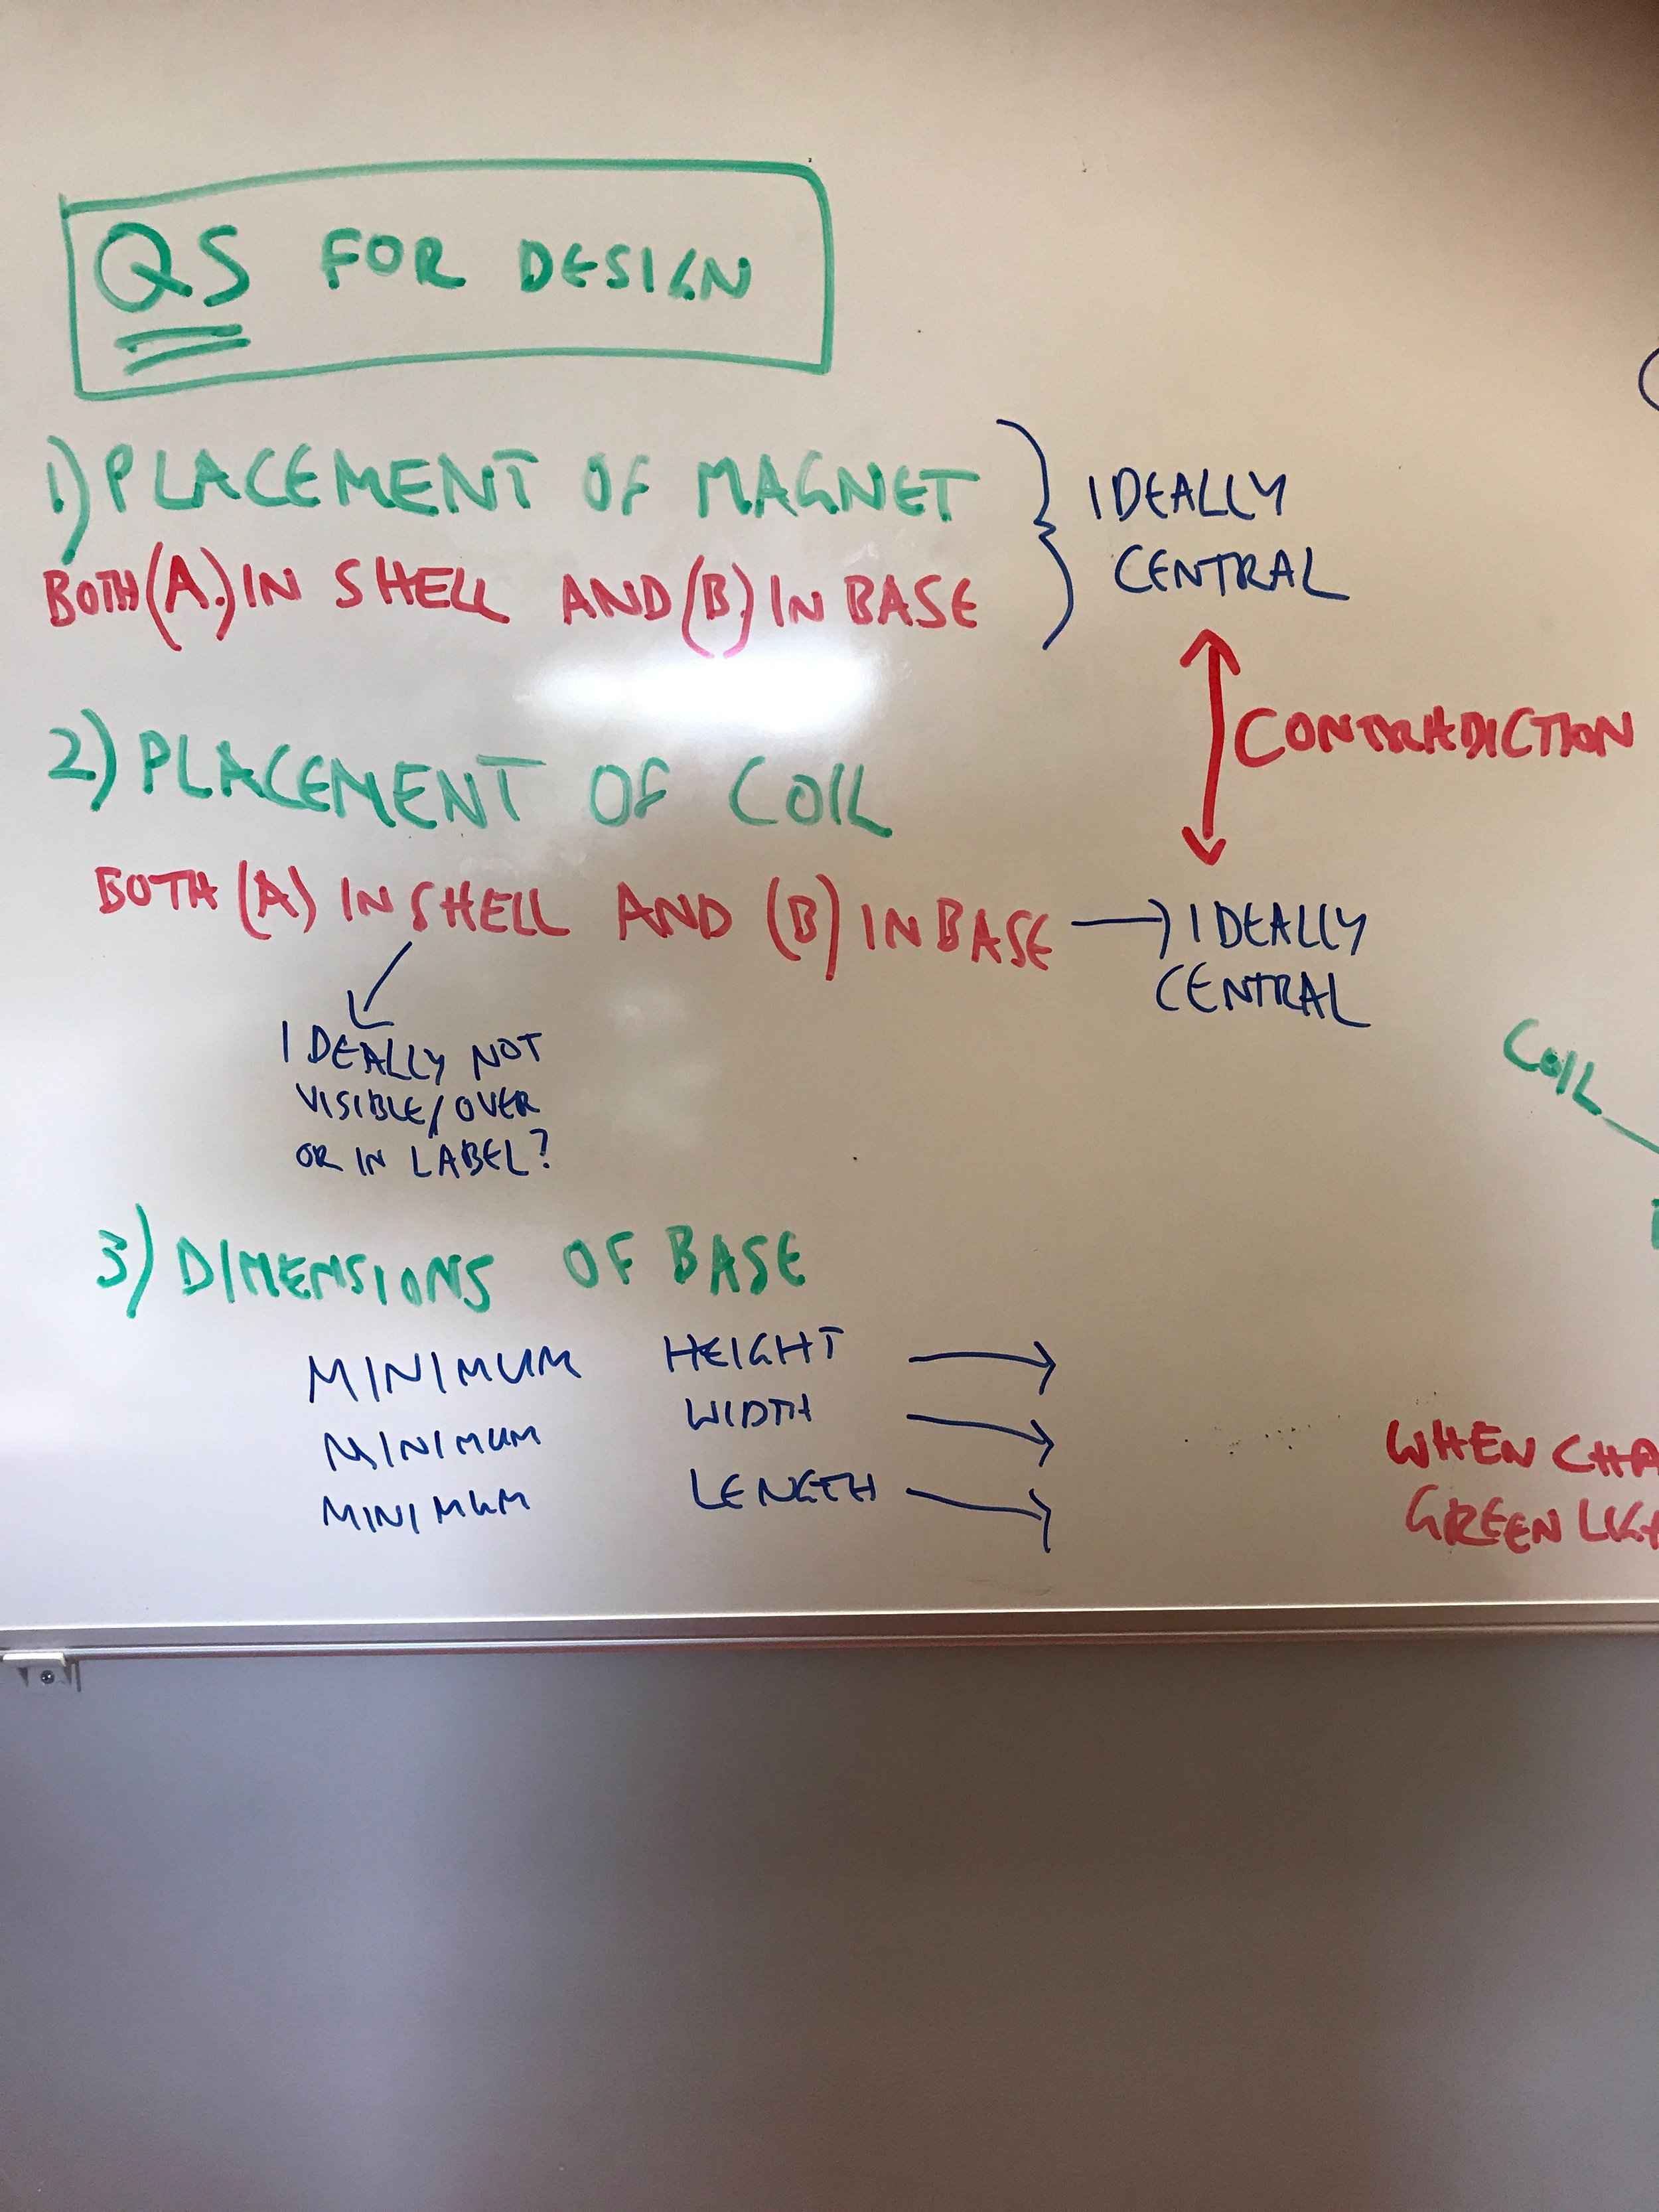 QS FOR DESIGN
1) PLACEMENT OF MAGNET
BOTH (A.) IN SHELL AND (B) IN BASE
IDEALLY
CENTRAL
CONTRADICTION
2) PLACEMENT OF COIL
BOTH (A) IN SHELL AND (B) IN BASE → IDEALLY
CENTRAL
IDEALLY NOT
VISIBLE/OVER
OR IN LABEL?
COIL
3) DIMENSIONS OF BASE
MINIMUM HEIGHT →
MINIMUM WIDTH →
MINIMUM LENGTH →
WHEN CHA
GREEN LIGH